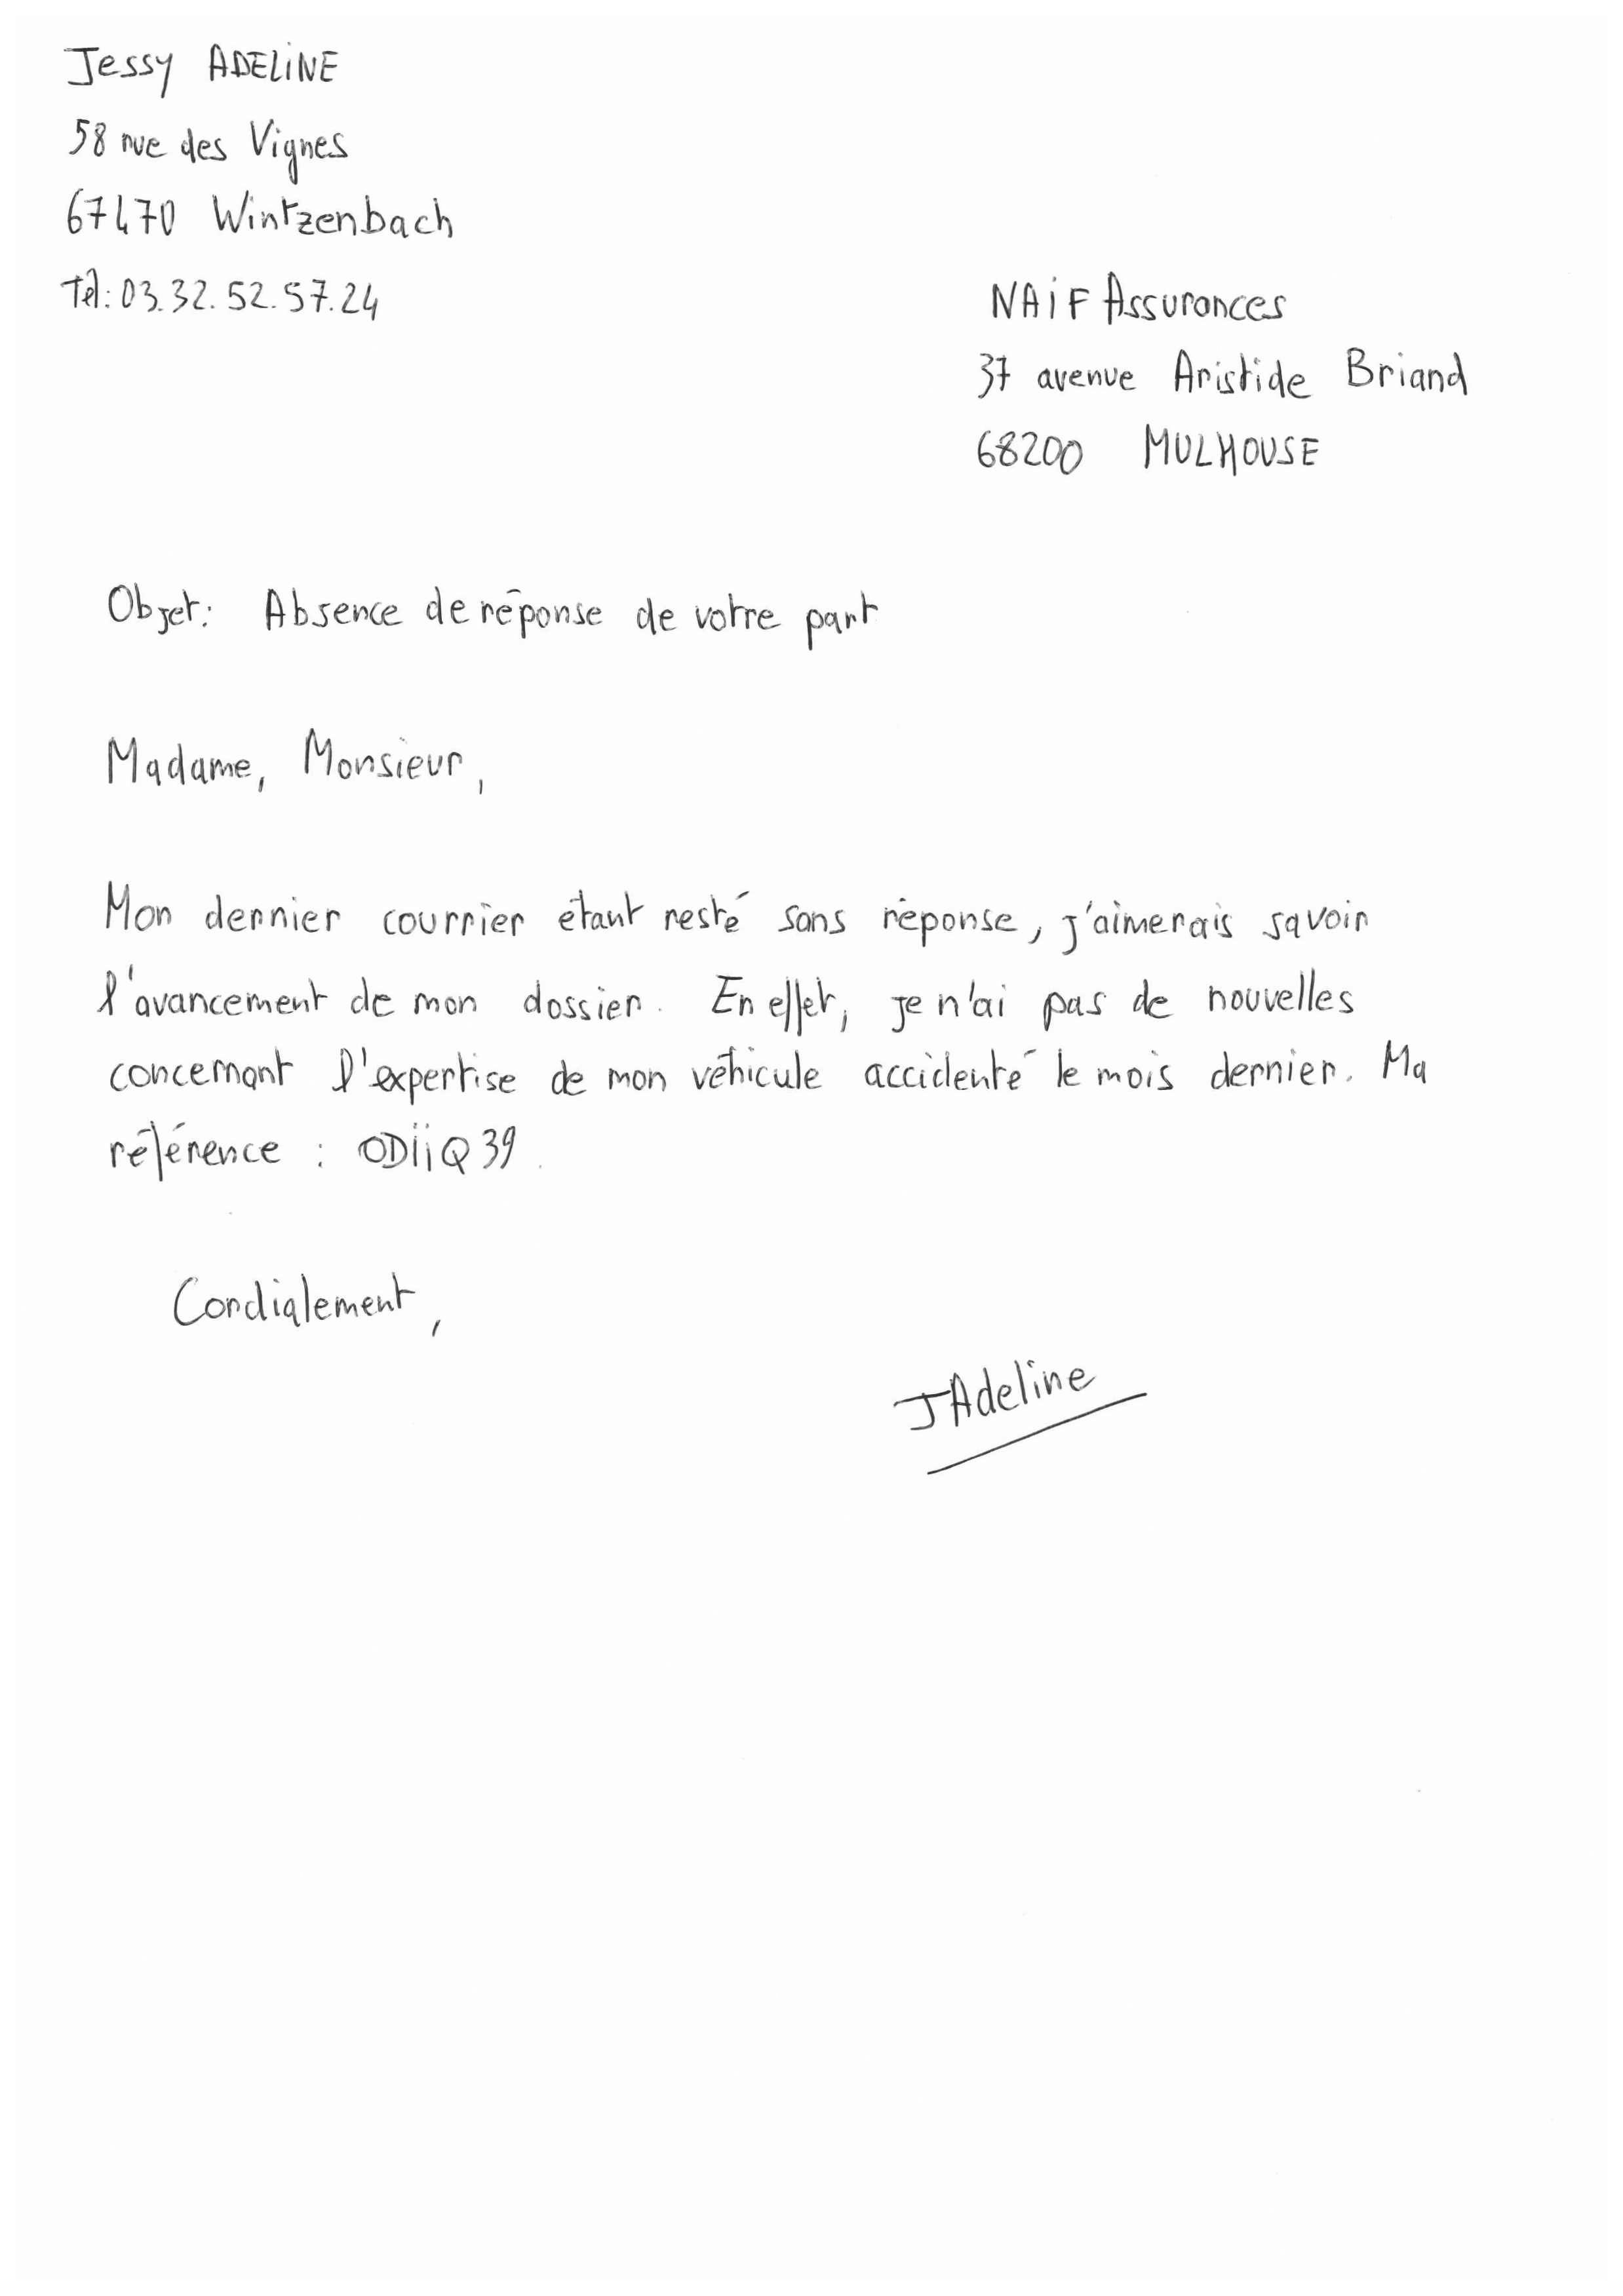 Jessy ADELiNE
58 rue des Vignes
67470 Wintzenbach
Tél: 03.32.52.57.24
NAiF Assurances
37 avenue Aristide Briand
68200 MULHOUSE
Objet: Absence de réponse de votre part
Madame, Monsieur,
Mon dernier courrier étant resté sans réponse, j'aimerais savoir
l'avancement de mon dossier. En effet, je n'ai pas de nouvelles
concernant l'expertise de mon véhicule accidenté le mois dernier. Ma
référence : ODiiQ39.
Cordialement,
JAdeline